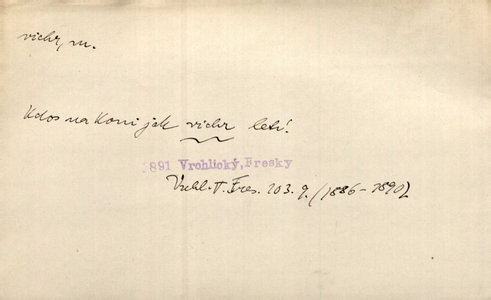 vichr, m.
Kdos na koni jak vichr letí!
891 Vrchlický, Fresky
Vrchl. Fres. 103. 9. (1886–1890)